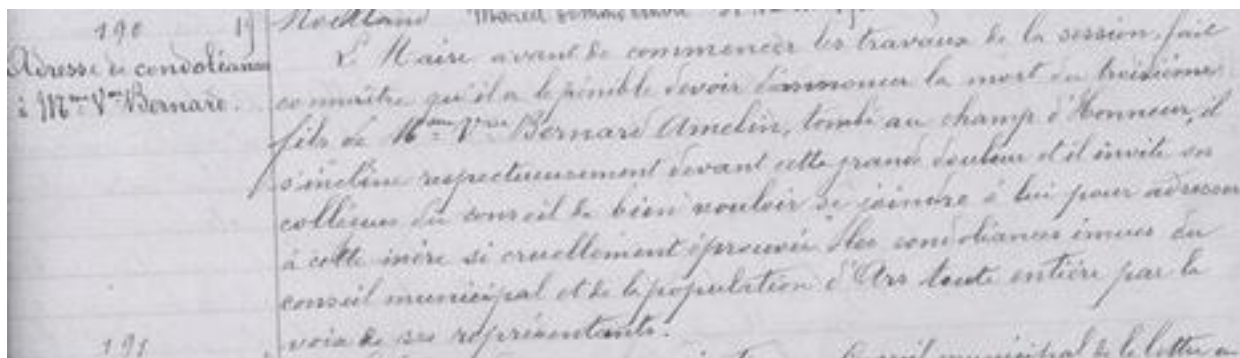 190
Adresse de condoléances
à Mme Vve Bernard.
L Maire avant de commencer les travaux de la session, fait
connaître qu'il a le pénible devoir d'annoncer la mort du troisième
fils de Mme Vve Bernard Amelin, tombé au champ d'Honneur, il
s'incline respectueusement devant cette grande douleur et il invite ses
collègues du conseil de bien vouloir se joindre à lui pour adresser
à cette mère si cruellement éprouvée les condoléances émues du
conseil municipal et de la population d'Ars toute entière par la
voix de ses représentants.
191
conseil municipal de la lettre